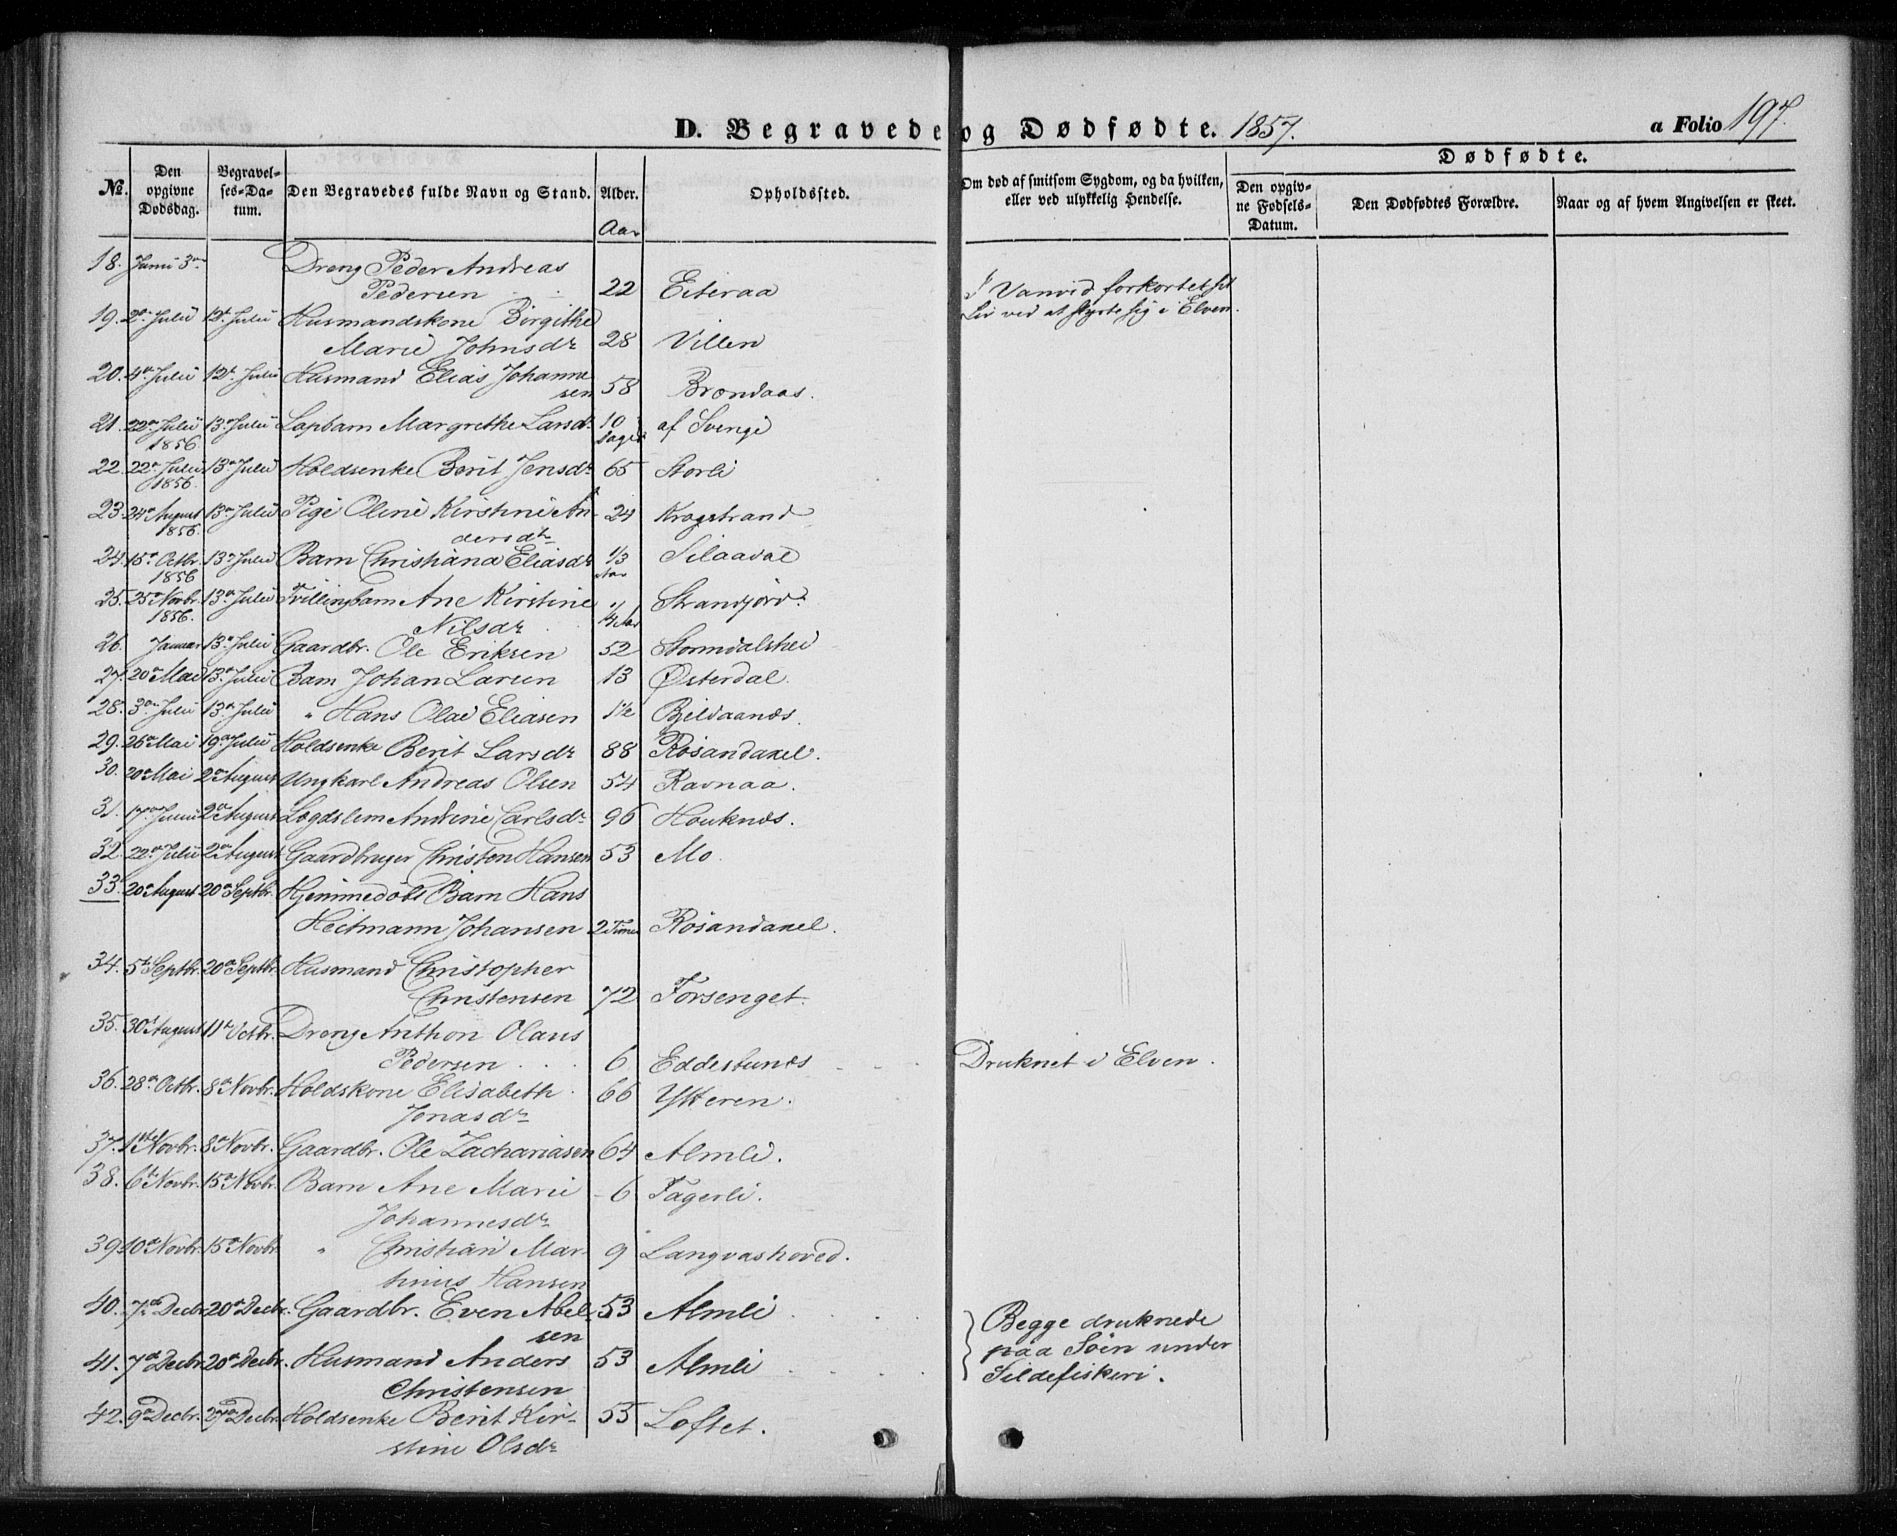 D. Begravede og Dødfødte. 1857. a Folio 197.
Dødfødte.
No. Den opgivne Dødsdag. Begravelses-Datum. Den Begravedes fulde Navn og Stand. Alder. Opholdssted. Om død af smitsom Sygdom, og da hvilken, eller ved ulykkelig Hendelse. Den opgivne Fødsels-Datum. Den Dødfødtes Forældre. Naar og af hvem Angivelsen er skeet.
Aar
18. Juni 3die Dreng Peder Andreas
Pedersen 22 Eiteraa I Vanvid forkortet sit
Liv ved at styrte sig i Elven.
19. 2den Julii 12t Julii Husmandskone Birgithe
Marie Johnsdr 28 Villen
20. 4de Julii 12t Julii Husmand Elias Johanne
sen 58 Brændaas.
21. 22de Julii 13de Julii Lapbarn Margrethe Larsdr 10 af Sverige
1856 Dage
22. 22de Julii 13de Julii Holdsenke Berit Jensdr 65 Storli
1856.
23. 24de August 13de Julii Pige Oline Kirstine An- 24 Krogstrand
1856. dersdtr
24. 15de Octbr. 13de Julii Barn Christiana Eliasdr 1/3 Silaaval
1856 Aar
25. 25de Novbr. 13de Julii Tvillingbarn Ane Kirstine Strandjord.
1856. Nilsdr 1/4 Aar
26. Januar 13de Julii Gaardbr. Ole Eriksen 52 Stormdalshei
27. 20de Mai 13de Julii Barn Johan Larsen 13 Østerdal.
28. 3die Julii 13de Julii " Hans Olai Eliasen 1½ Bjeldaanæs.
29. 26de Mai 19de Julii Holdsenke Berit Larsdr 88 Røsandaxel.
30. 20de Mai 2den August Ungkarl Andreas Olsen 54 Ravnaa.
31. 17de Junii 2den August Lægdslem Andrine Carlsdr 96 Houknæs.
32. 22de Julii 2den August Gaardbruger Christen Hansen 53 Mo.
33. 20de August 20de Septbr. Hjemmedøbt Barn Hans
Heitmann Johansen 2 Timer Røsandaxel.
34. 5te Septbr. 20de Septbr. Husmand Christopher
Christensen 72 Forsenget.
35. 30te August 11te Octbr. Dreng Anthon Olaus
Pedersen 6 Eddestunes Druknet i Elven.
36. 28de Octbr. 8de Novbr. Holdskone Elisabeth 66 Ytteren.
Jonasdr
37. 1ste Novbr. 8de Novbr. Gaardbr. Ole Zachariasen 64 Almli.
38. 6te Novbr. 15de Novbr. Barn Ane Marie 6 Fagerli.
Johannesdr
39. 10de Novbr. 15de Novbr " Christian Mar- 9 Langvashoved.
tinus Hansen
40. 7de Decbr. 20de Decbr. Gaardbr. Even Abel- 53 Almli Begge druknede
sen paa Søen under
41. 7de Decbr. 20de Decbr. Husmand Anders 53 Almli Sildefiskeri.
Christensen
42. 9de Decbr. 27de Decbr. Holdsenke Berit Kir- 55 Loftet.
stine Olsdr